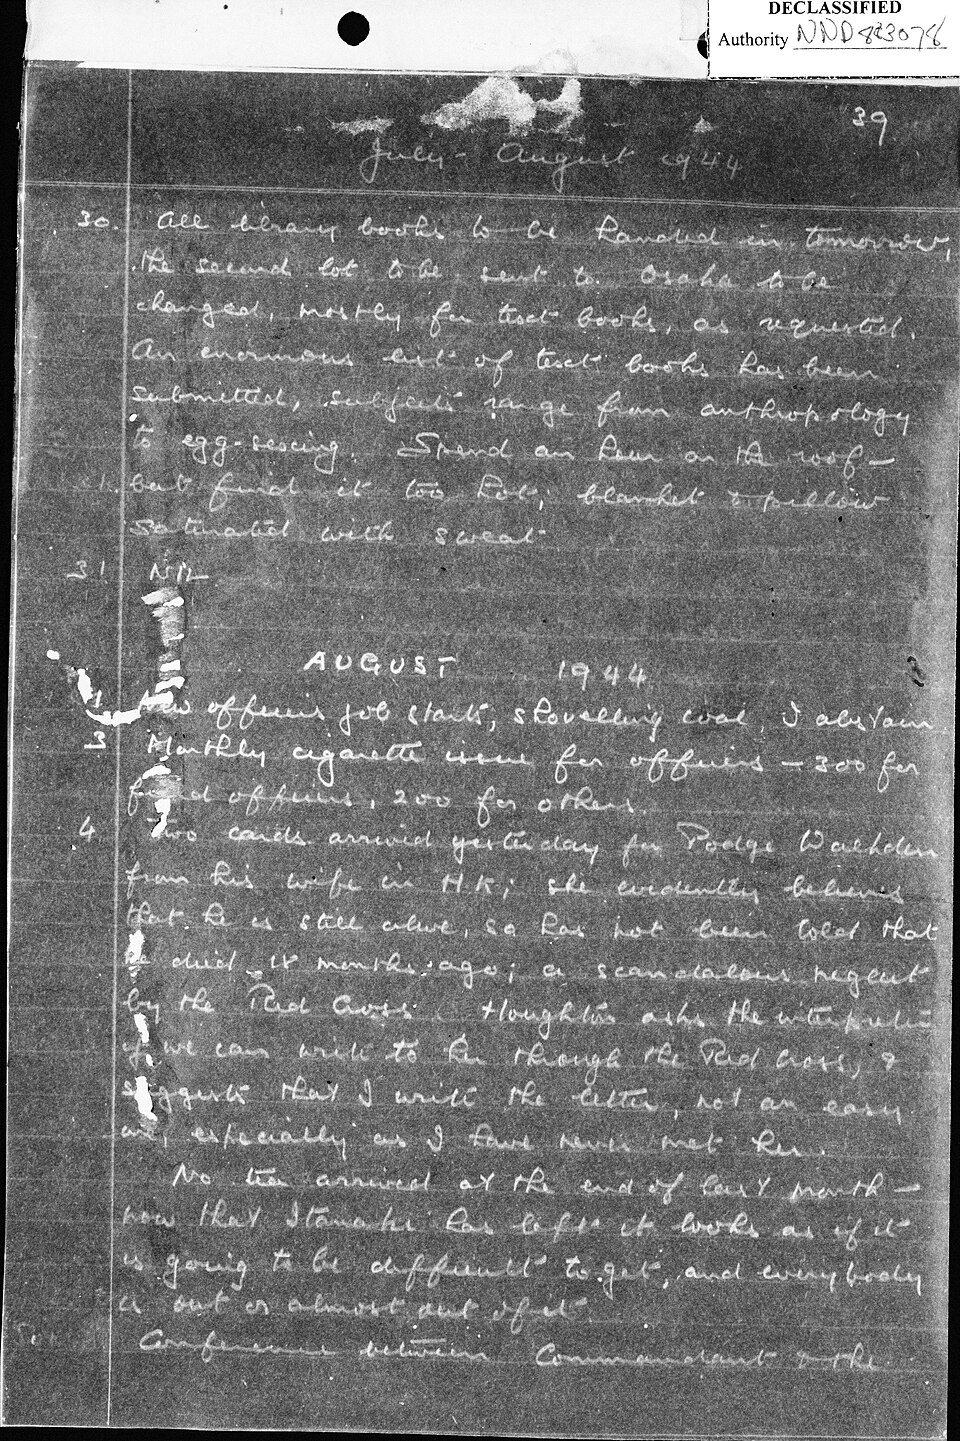 DECLASSIFIED
Authority NND 883078
39
July - August 1944
30. All library books to be handed in tomorrow,
the second lot to be sent to Osaka to be
changed, mostly for text books, as requested.
An enormous list of text books has been
submitted, subjects range from anthropology
to egg-sexing. Spend an hour on the roof —
but find it too hot; blanket & pillow
saturated with sweat
31 NIL
AUGUST 1944
1 New officers job starts, shovelling coal, I abstain
3 Monthly cigarette issue for officers — 300 for
field officers, 200 for others.
4 Two cards arrived yesterday for Podge
from his wife in H K; she evidently believes
that he is still alive, so has not been told that
he died 18 months ago; a scandalous neglect
by the Red Cross. Houghton asks the interpreter
if we can write to her through the Red Cross, &
suggests that I write the letter, not an easy
one, especially as I have never met her.
No tea arrived at the end of last month —
now that Itanaki has left it looks as if it
is going to be difficult to get, and everybody
is out or almost out of it.
Conference between Commandant & the